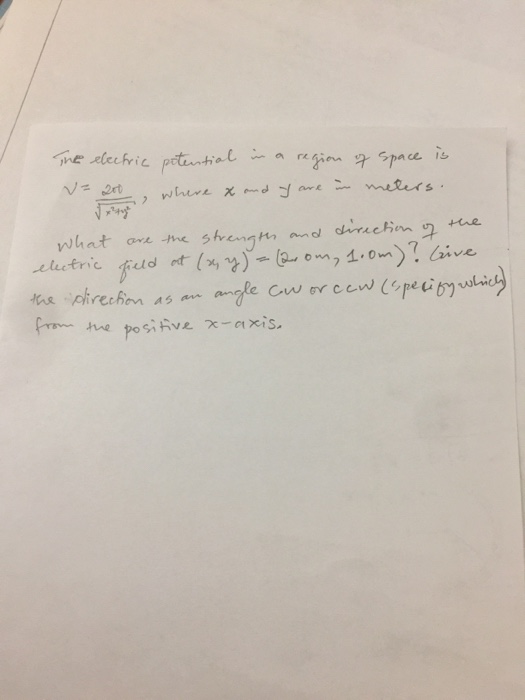 The electric potential in a region of space is
V = 200/√x²+y², where x and y are in meters.
What are the strength and direction of the
electric field at (x, y) = (2.0m, 1.0m)? Give
the direction as an angle cw or ccw (specify which)
from the positive x-axis.